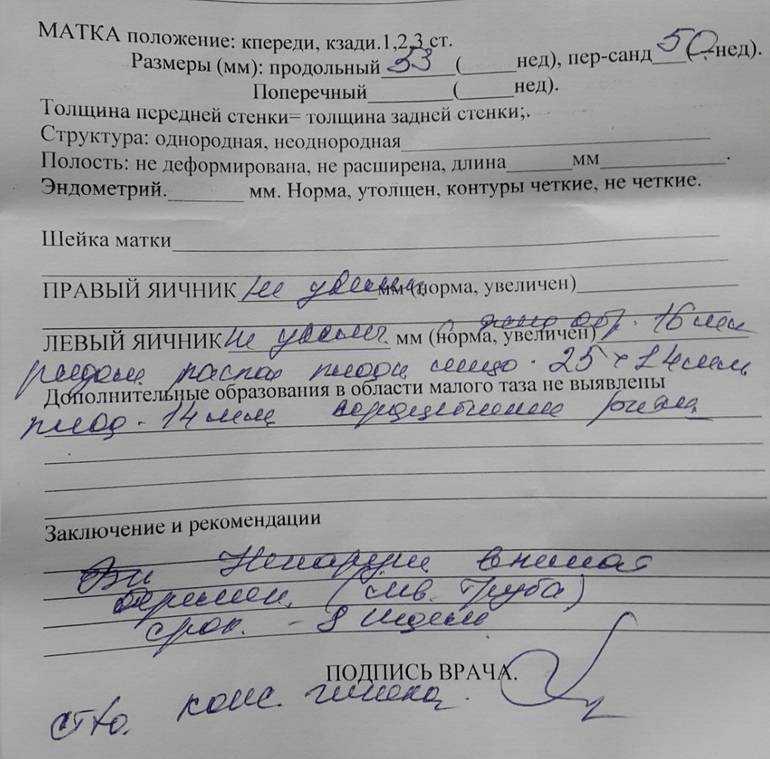 МАТКА положение: кпереди, кзади.1,2,3 ст.
Размеры (мм): продольный 53 (____нед), пер-санд 50 (.-нед).
Поперечный________(_____нед).
Толщина передней стенки= толщина задней стенки;.
Структура: однородная, неоднородная
Полость: не деформирована, не расширена, длина______мм
Эндометрий.________ мм. Норма, утолщен, контуры четкие, не четкие.
Шейка матки
ПРАВЫЙ ЯИЧНИК не увелич. мм (норма, увеличен)
ЛЕВЫЙ ЯИЧНИК не увелич. мм (норма, увеличен) обр. 16 мм
рядом распол плодн яйцо. 25 × 24 мм
Дополнительные образования в области малого таза не выявлены
плод - 14 мм
Заключение и рекомендации
Ненаруш внемат
беремен. (лев. труба)
срок. - 8 недель
ПОДПИСЬ ВРАЧА.
конс. гинеко